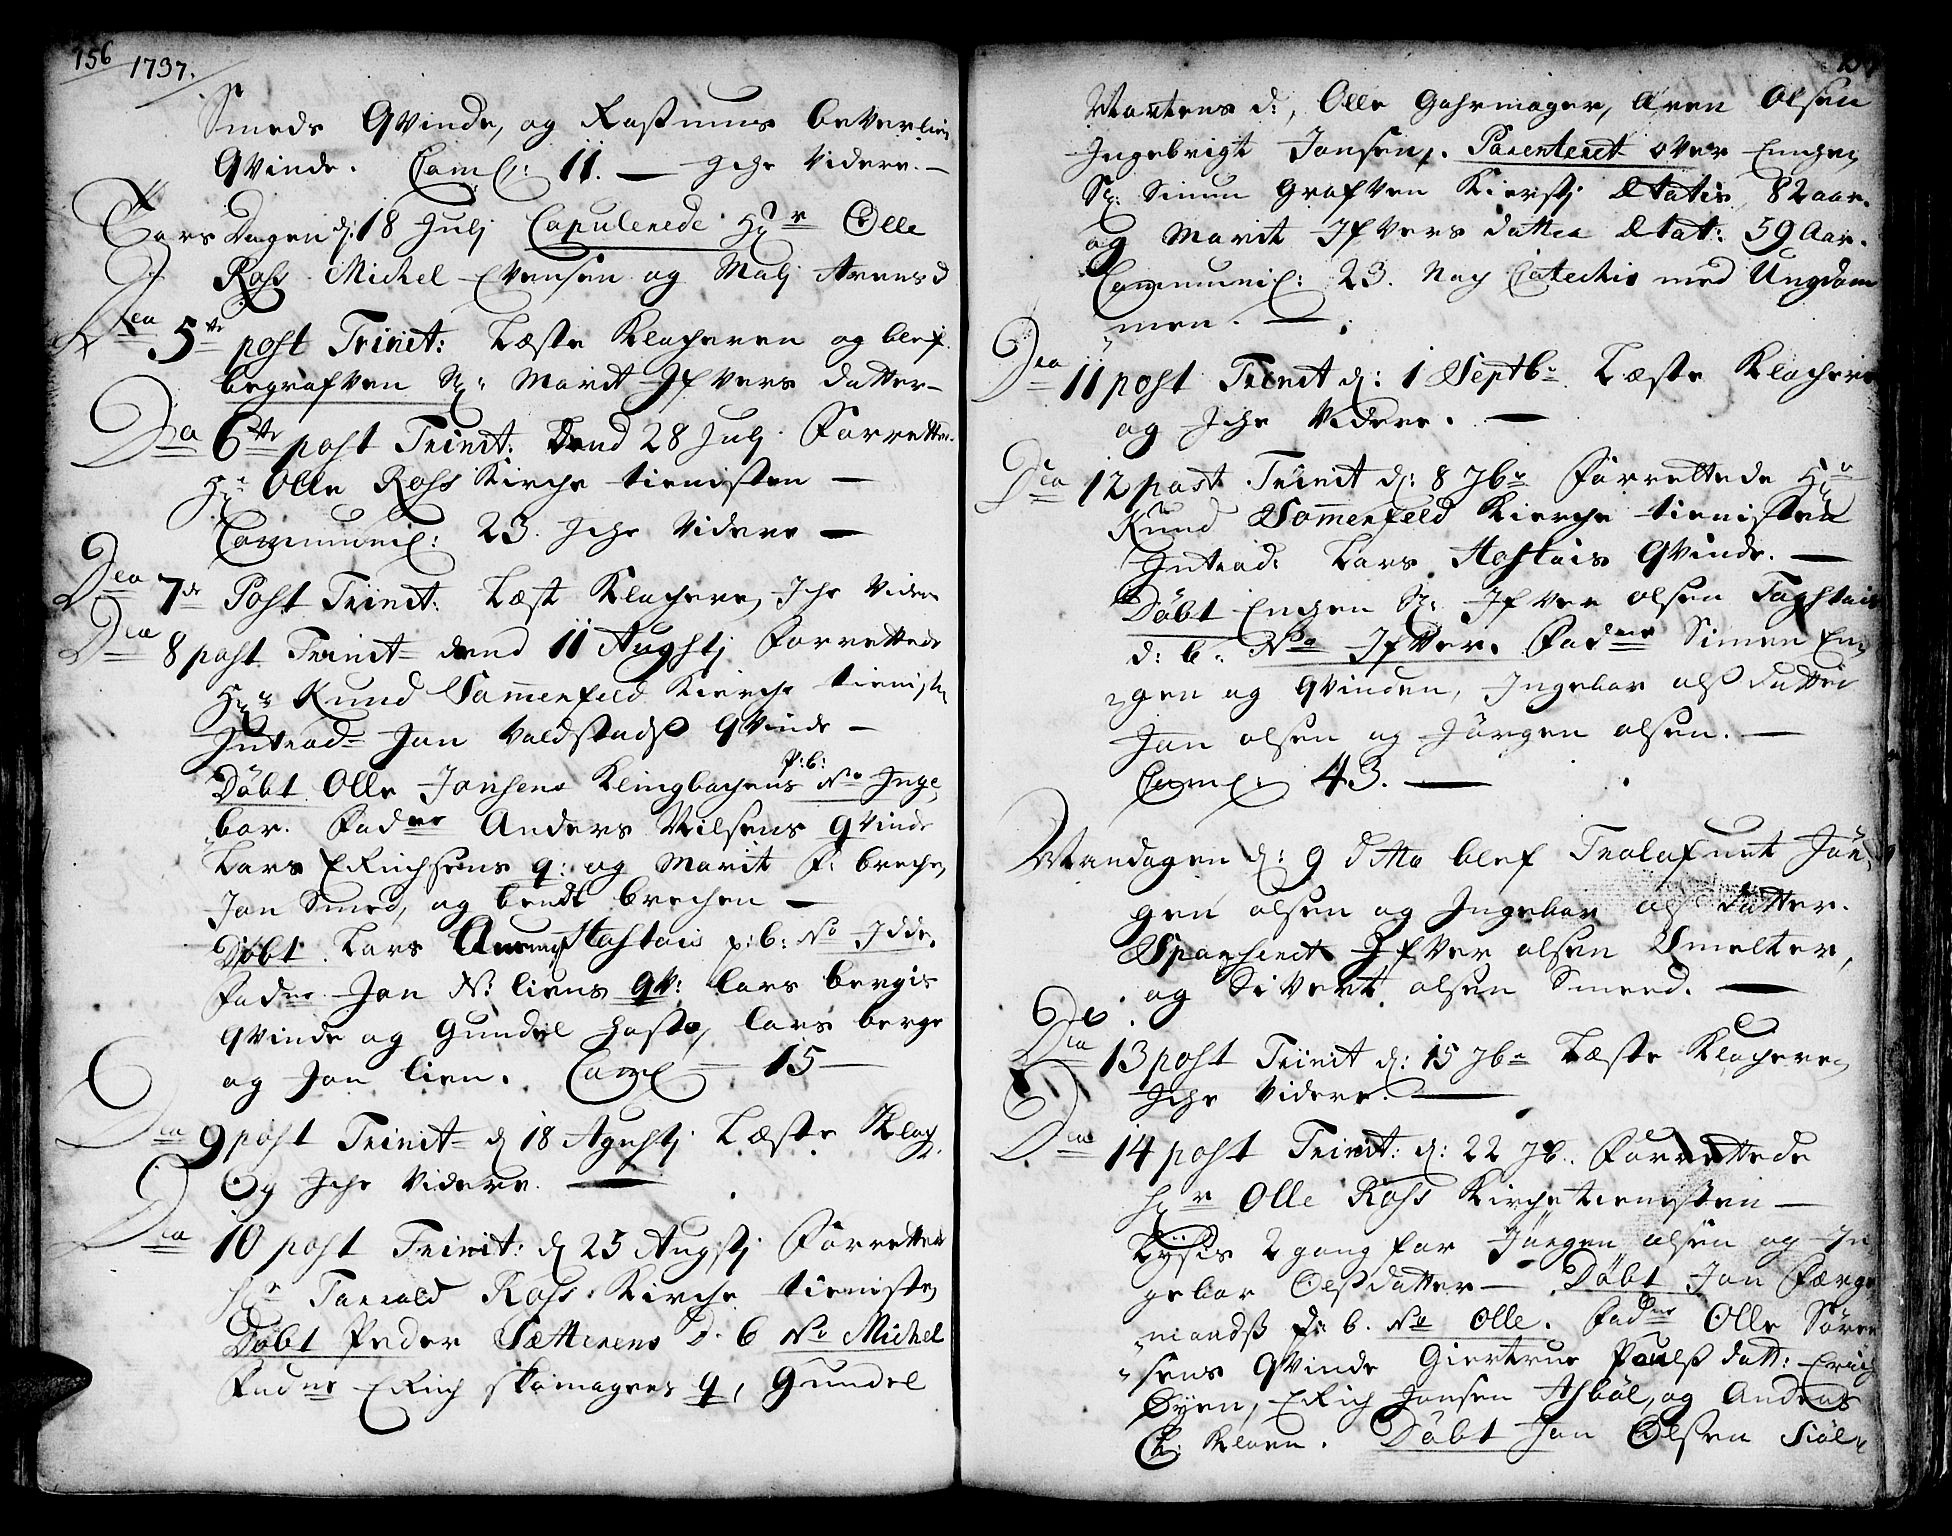 156 1737.
Smeds Qvinde, og Rasmus beverlien
Qvinde. Com̅: 11. — Iche Videre. —
Tors Dagen d: 18 Julj Copulerede Hr Olle
Ross Michel Evensen og Malj Arens d
Dca 5te post Trinit: Læste Klocheren og blef
begrafven Sl: Marit Ifvers datter —
Dca 6te post Trinit: dend 28 Julj Forrettede
Hr Olle Ross Kirche tienisten —
Communic: 23. Iche Videre —
Dca 7de Post Trinit: Læst Klocheren, Iche Videre
Dca 8 post Trinit dend 11 Augstj Forrettede
Hr Knud Sommenfeld Kierche tienisten
Introd Jon Voldstads Qvinde —
Døbt Olle Jonsens Klingbachens p: b: No Inge
bor. Fadne Anders Nilsens qvinde
Lars Erichsens q: og Marit P: brechen
Jon Smed, og bendt brechen —
Døbt Lars Hostois p: b: No Idde.
Fadne Jon N: liens qv: lars bergis
Qvinde og Gundel hosto, lars berge
og Jon lien. Com̅ 15 —
Dca 9 post Trinit d 18 Agustj Læste Kloch
Og Iche Videre. —
Dca 10 post Trinit: d 25 Augstj Forrettede
Hr Torrold Ross Kirche tienisten
Døbt Peder Sætterens d. b No Michel
Fadne Erich skomagers q, Gundel
Mortens d:, Olle Gahrmager, Aren Olsen
Ingebrigt Jonsen,. Parenteret over Enchen
Sl: Simen Grafven Kierstj Ætatis 82 aar.
og Marit Ifvers datter Ætat: 59 Aar.
Communic: 23. Noch Catechis med Ungdom
men. —
Dca 11 post Trinit d: 1 Septbr Læste Klocheren
og Iche Videre. —
Dca 12 post Trinit d: 8 7br Forrettede Hr
Knud Sommenfeld Kierche tienisten
Introd: Lars Hostois Qvinde. —
Døbt Enchen Sl: Ifver olsen Togstois
d: b: No Ifver. Fadne Simen En
gen og Qvinden, Ingebor ols datter
Jon olsen og Jørgen olsen. —
Com̅: 43. —
Mandagen d: 9 ditto blef Trolofvet Jør
gen olsen og Ingebor ols datter.
Sponserit Ifver olsen Smelter,
og Sivert olsen Smed. —
Dca 13 post Trinit d: 15 7br Læste Klocheren
Iche Videre. —
Dca 14 post Trinit: d: 22 7b. Forrettede
Hr Olle Ross Kirche tienisten —
Lysis 2 gang for Jørgen olsen og In
gebor Olsdatter — Døbt Jon Færge
mands p: b. No Olle. Fadne Olle Søren
sens Qvinde Giertrue Pouls datt: Erich
Øyen, Erich Jonsen Asbøl, og Anders
E: Kloen. Døbt Jon Olsen Siøl